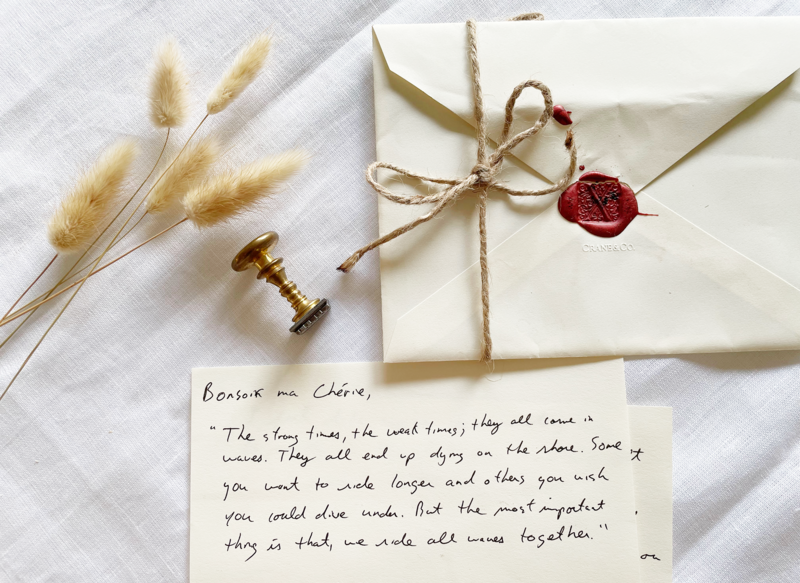 CRANE&CO
Bonsoir ma Chérie,
"The strong times, the weak times; they all come in
waves. They all end up dying on the shore. Some
you want to ride longer and others you wish
you could dive under. But the most important
thing is that, we ride all waves together."
on